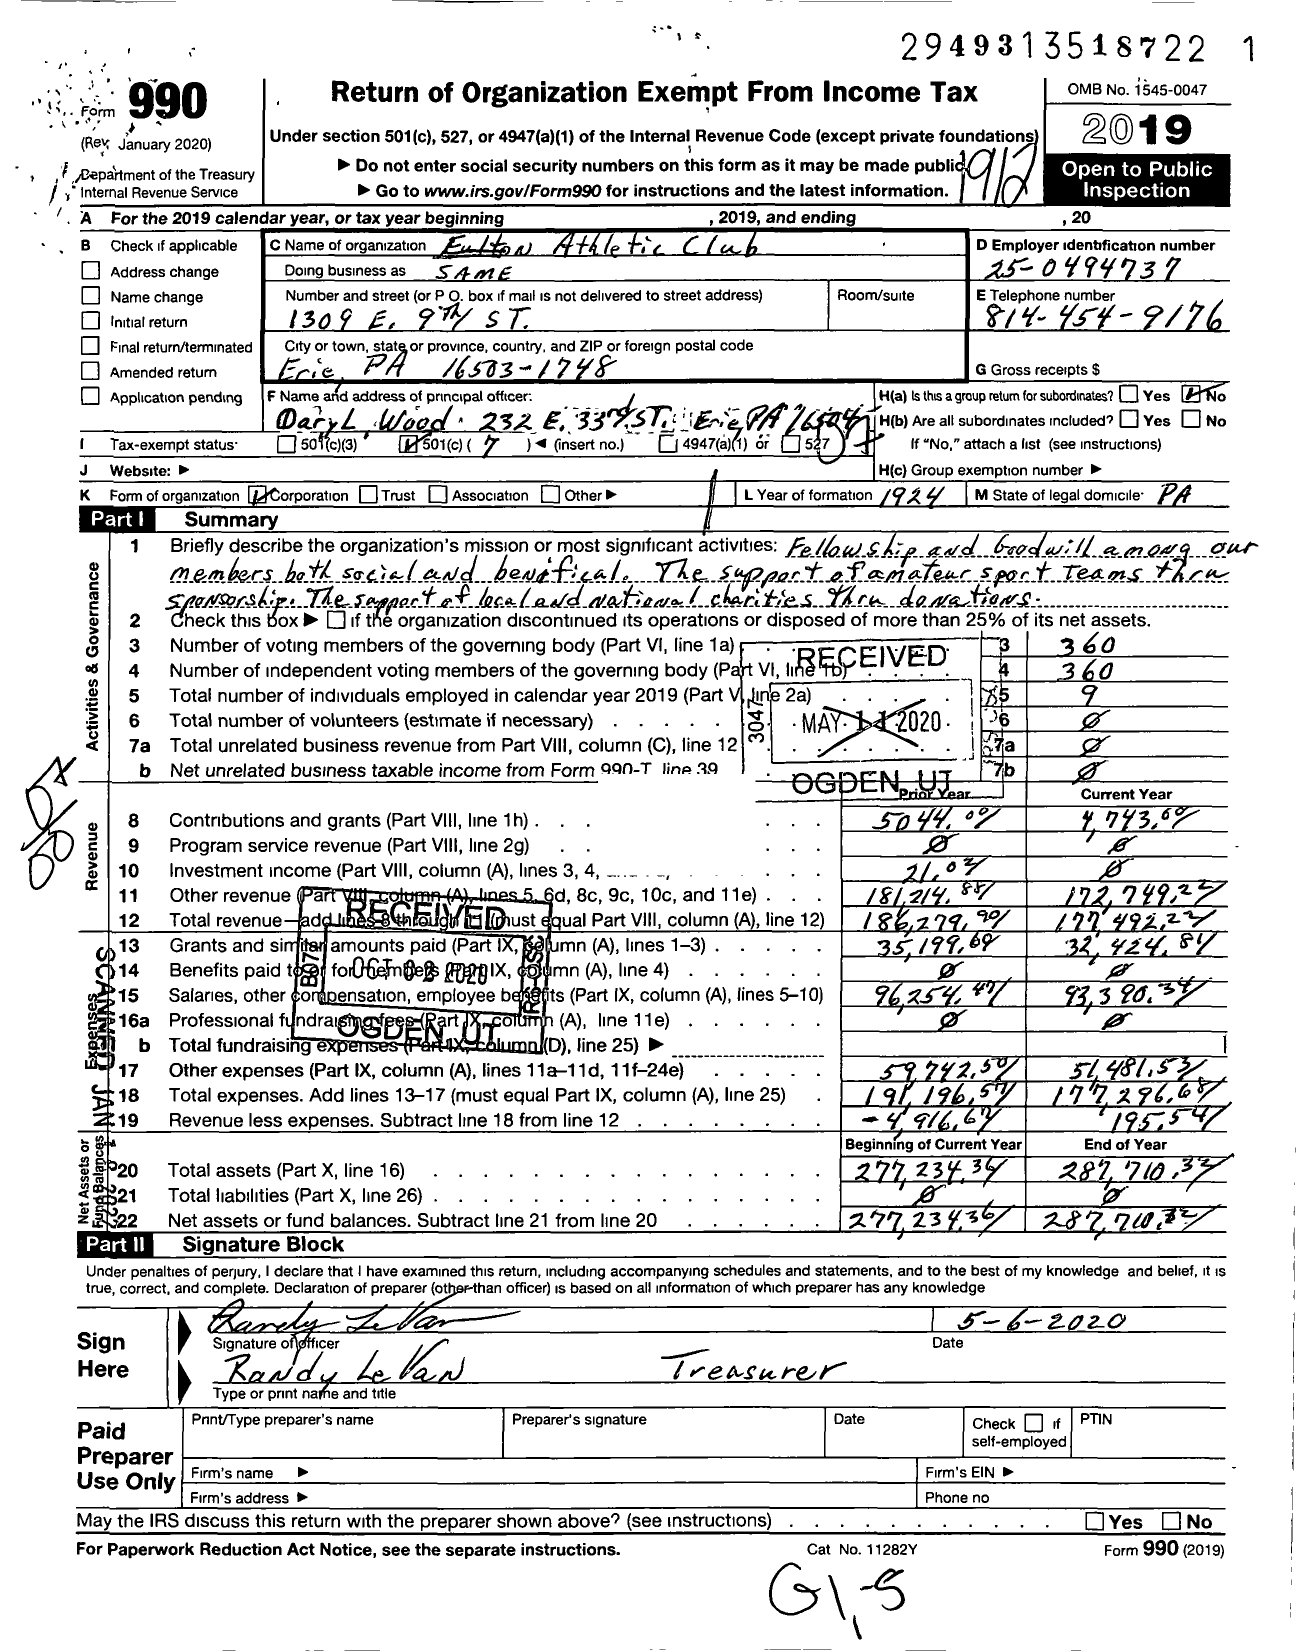 29493135187221
Form 990
(Rev. January 2020)
Department of the Treasury
Internal Revenue Service
Return of Organization Exempt From Income Tax
Under section 501(c), 527, or 4947(a)(1) of the Internal Revenue Code (except private foundations)
▶ Do not enter social security numbers on this form as it may be made public.
▶ Go to www.irs.gov/Form990 for instructions and the latest information.
1912
OMB No. 1545-0047
2019
Open to Public Inspection
A For the 2019 calendar year, or tax year beginning , 2019, and ending , 20
B Check if applicable
Address change
Name change
Initial return
Final return/terminated
Amended return
Application pending
C Name of organization Fulton Athletic Club
Doing business as SAME
Number and street (or P O. box if mail is not delivered to street address) Room/suite
1309 E. 9TH ST.
City or town, state or province, country, and ZIP or foreign postal code
Erie, PA 16503-1748
D Employer identification number
25-0494737
E Telephone number
814-454-9176
G Gross receipts $
F Name and address of principal officer:
Daryl Wood 232 E. 33rd ST. Erie, PA 16504
H(a) Is this a group return for subordinates? Yes No
H(b) Are all subordinates included? Yes No
If "No," attach a list (see instructions)
H(c) Group exemption number ▶
I Tax-exempt status: 501(c)(3) 501(c) ( 7 ) ◀ (insert no.) 4947(a)(1) or 527
J Website: ▶
K Form of organization Corporation Trust Association Other ▶
L Year of formation 1924
M State of legal domicile: PA
Part I Summary
Activities & Governance
1 Briefly describe the organization's mission or most significant activities: Fellowship and Goodwill among our
members both social and benifical. The support of amateur sport Teams thru
sponsorship. The support of local and national charities thru donations.
2 Check this box ▶ if the organization discontinued its operations or disposed of more than 25% of its net assets.
3 Number of voting members of the governing body (Part VI, line 1a) 3 360
4 Number of independent voting members of the governing body (Part VI, line 1b) 4 360
5 Total number of individuals employed in calendar year 2019 (Part V, line 2a) 5 9
6 Total number of volunteers (estimate if necessary) 6 0
7a Total unrelated business revenue from Part VIII, column (C), line 12 7a 0
b Net unrelated business taxable income from Form 990-T, line 39 7b 0
RECEIVED
3047
MAY 11 2020
OGDEN, UT
Prior Year Current Year
Revenue
8 Contributions and grants (Part VIII, line 1h) 5044.00 4,743.00
9 Program service revenue (Part VIII, line 2g) 0 0
10 Investment income (Part VIII, column (A), lines 3, 4, 21.02 0
11 Other revenue (Part VIII, column (A), lines 5, 6d, 8c, 9c, 10c, and 11e) 181,214.88 172,749.22
12 Total revenue—add lines 8 through 11 (must equal Part VIII, column (A), line 12) 186,279.90 177,492.22
Expenses
13 Grants and similar amounts paid (Part IX, column (A), lines 1–3) 35,199.60 32,424.81
14 Benefits paid to or for members (Part IX, column (A), line 4) 0 0
15 Salaries, other compensation, employee benefits (Part IX, column (A), lines 5–10) 96,254.47 93,390.34
16a Professional fundraising fees (Part IX, column (A), line 11e) 0 0
b Total fundraising expenses (Part IX, column (D), line 25) ▶
17 Other expenses (Part IX, column (A), lines 11a–11d, 11f–24e) 59,742.50 51,481.53
18 Total expenses. Add lines 13–17 (must equal Part IX, column (A), line 25) 191,196.57 177,296.68
19 Revenue less expenses. Subtract line 18 from line 12 -4,916.67 195.54
RECEIVED
OCT 02 2020
IRS-OSC
OGDEN, UT
SCANNED JAN
Net Assets or Fund Balances
Beginning of Current Year End of Year
20 Total assets (Part X, line 16) 277,234.36 287,710.32
21 Total liabilities (Part X, line 26) 0 0
22 Net assets or fund balances. Subtract line 21 from line 20 277,234.36 287,710.32
Part II Signature Block
Under penalties of perjury, I declare that I have examined this return, including accompanying schedules and statements, and to the best of my knowledge and belief, it is
true, correct, and complete. Declaration of preparer (other than officer) is based on all information of which preparer has any knowledge
Sign Here
Randy LeVan 5-6-2020
Signature of officer Date
Randy LeVan Treasurer
Type or print name and title
Paid Preparer Use Only
Print/Type preparer's name Preparer's signature Date Check if self-employed PTIN
Firm's name ▶ Firm's EIN ▶
Firm's address ▶ Phone no
May the IRS discuss this return with the preparer shown above? (see instructions) Yes No
For Paperwork Reduction Act Notice, see the separate instructions. Cat No. 11282Y Form 990 (2019)
G1,-5